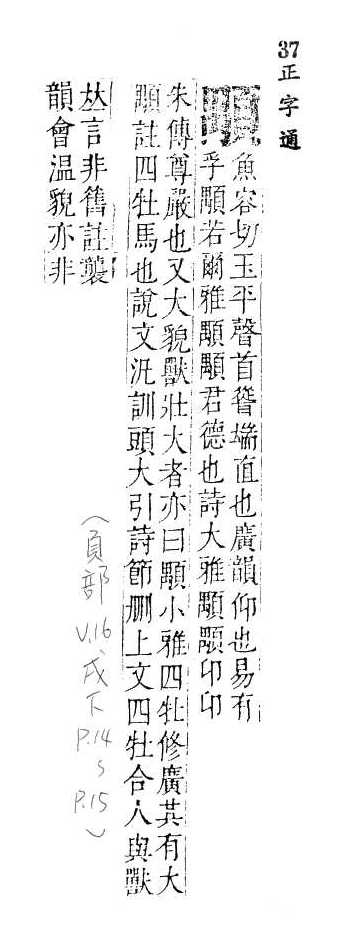 37正字通
顒
魚容切玉平聲首聳端直也廣韻仰也易有
孚顒若爾雅顒顒君德也詩大雅顒顒卬卬
朱傳尊嚴也又大貌獸壯大者亦曰顒小雅四牡修廣其有大
顒註四牡馬也說文汎訓頭大引詩節刪上文四牡合人與獸
𠀤言非舊註襲
韻會溫貌亦非
(頁部
V.16、戌下
P.14
S
P.15)